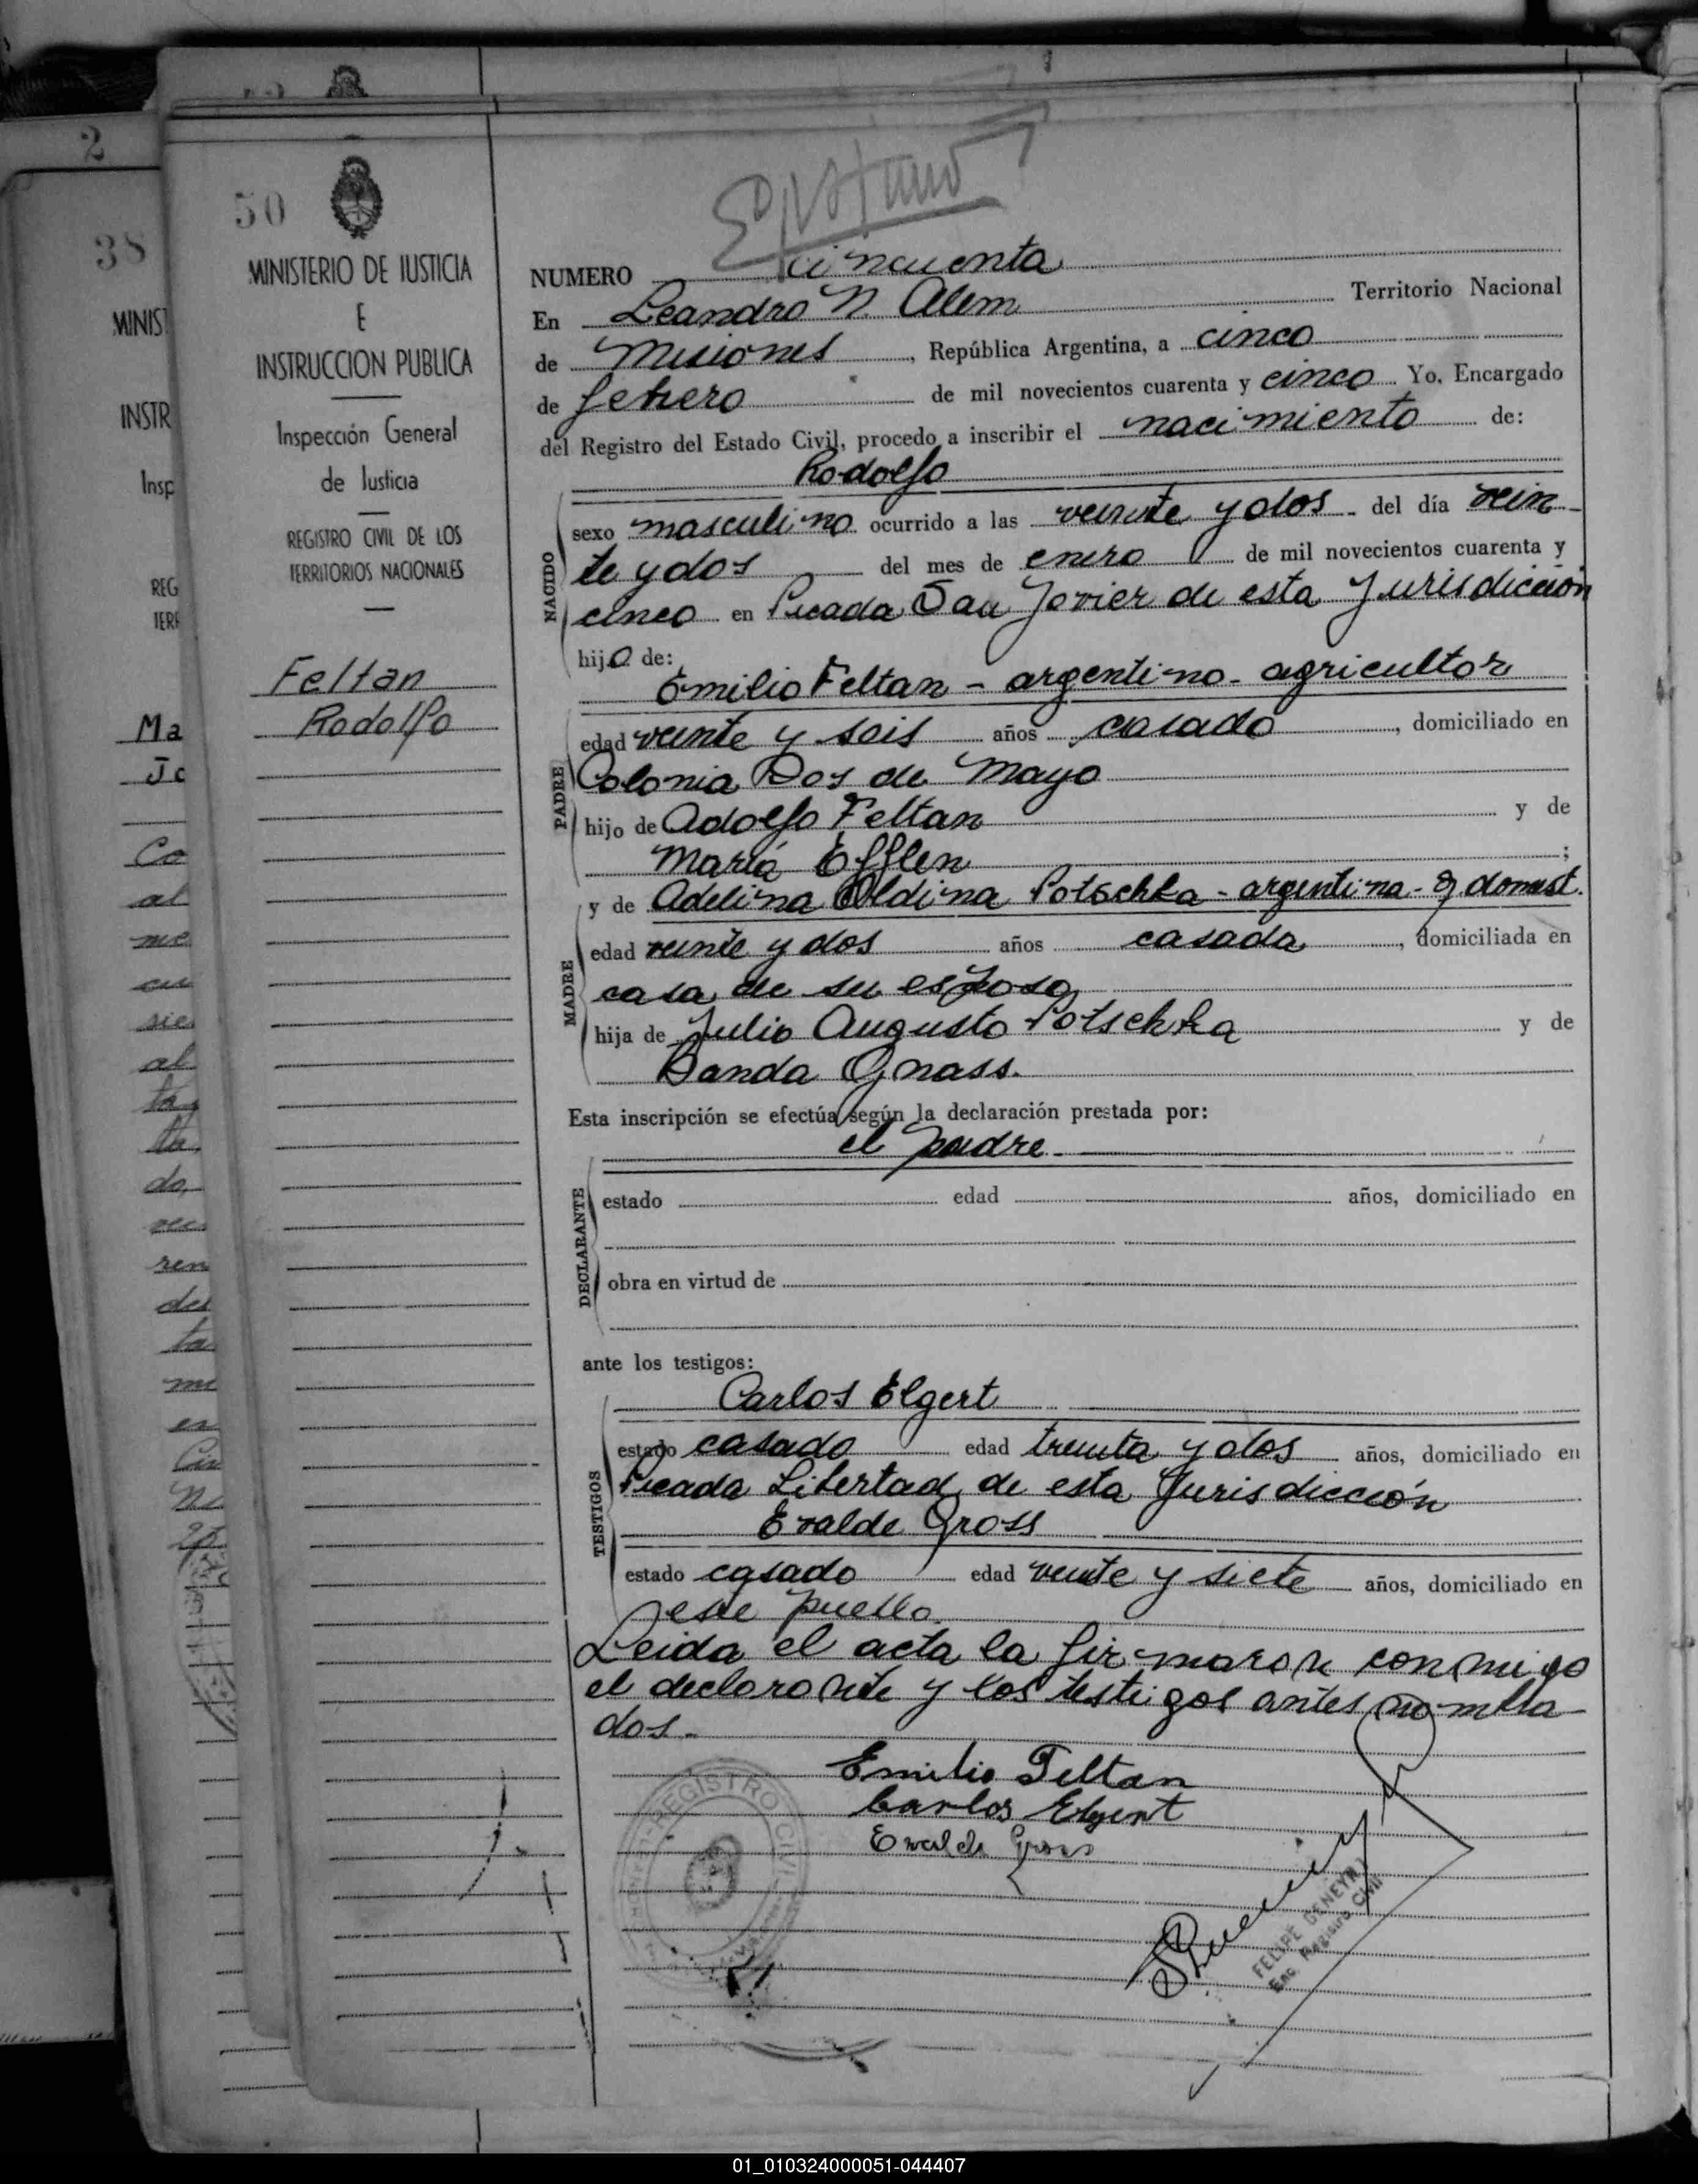 2
38
MINIST
INSTR
Insp
REG
TERR
Ma
Jo
Co
al
me
cu
sie
al
la
do,
ren
des
ta
mi
en
50
MINISTERIO DE JUSTICIA
E
INSTRUCCION PUBLICA
Inspección General
de Justicia
REGISTRO CIVIL DE LOS
TERRITORIOS NACIONALES
Feltan
Rodolfo
NUMERO cincuenta
En Leandro N. Alem Territorio Nacional
de Misiones, República Argentina, a cinco
de febrero de mil novecientos cuarenta y cinco Yo, Encargado
del Registro del Estado Civil, procedo a inscribir el nacimiento de:
Rodolfo
NACIDO
sexo masculino ocurrido a las veinte y dos del día vein-
te y dos del mes de enero de mil novecientos cuarenta y
cinco en Picada San Javier de esta Jurisdicción
hijo de:
Emilio Feltan - argentino - agricultor
PADRE
edad veinte y seis años casado, domiciliado en
Colonia Dos de Mayo
hijo de Adolfo Feltan y de
María Efflen;
y de Adelina Oldina Potschka - argentina - q domest.
MADRE
edad veinte y dos años casada, domiciliada en
casa de su esposo
hija de Julio Augusto Potschka y de
Banda Gnass.
Esta inscripción se efectúa según la declaración prestada por:
el padre.
DECLARANTE
estado edad años, domiciliado en
obra en virtud de
ante los testigos:
Carlos Elgert
TESTIGOS
estado casado edad treinta y dos años, domiciliado en
Picada Libertad de esta Jurisdicción
Evalde Gross
estado casado edad veinte y siete años, domiciliado en
este pueblo.
Leida el acta la firmaron conmigo
el declarante y los testigos antes nombra-
dos.-
Emilio Feltan
Carlos Elgert
Evalde Gross
REGISTRO CIVIL
FELIPE GENEYRO
Enc. Registro Civil
01_010324000051-044407